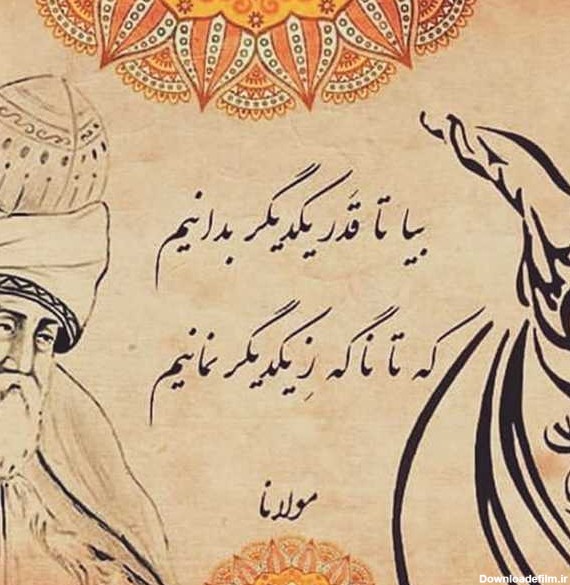 بیا تا قَدر یکدیگر بدانیم
که تا ناگه زِ یکدیگر نمانیم
مولانا
Downloadefilm.ir